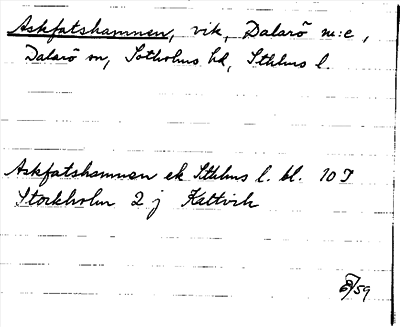 Askfatshamnen, vik, Dalarö m:e,
Dalarö sn, Sotholms hd, Sthlms l.
Askfatshamnen ek Sthlms l. bl. 10 J
Stockholm 2 j Kattvik
/59